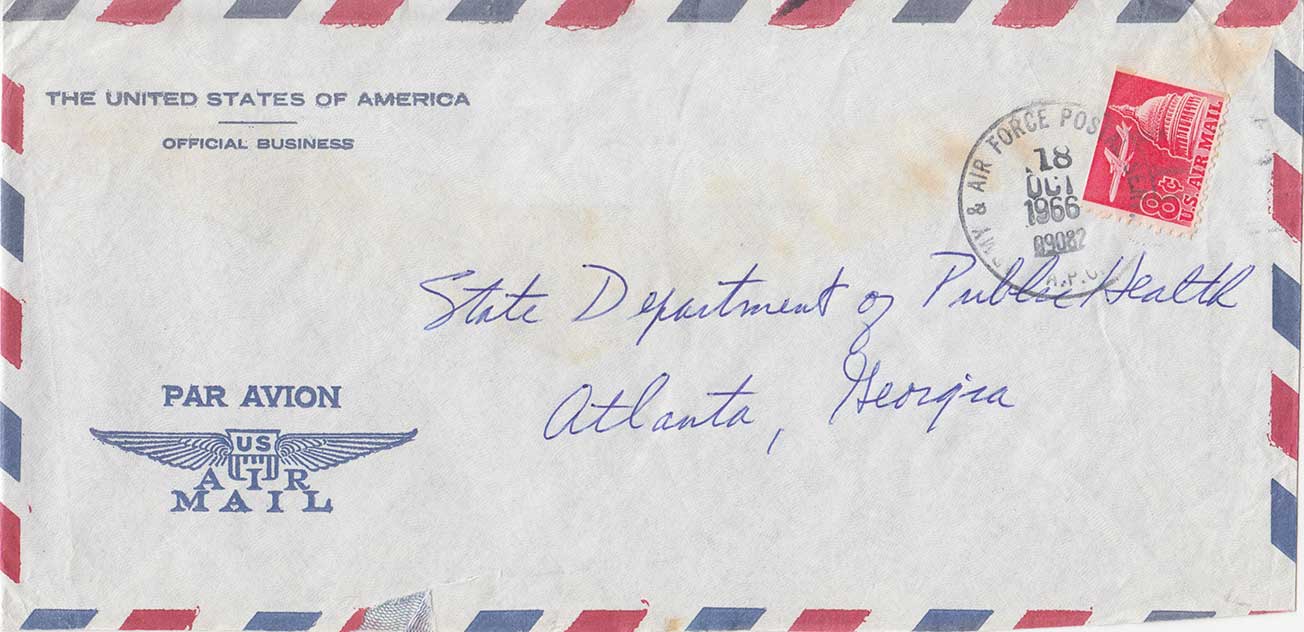 THE UNITED STATES OF AMERICA
OFFICIAL BUSINESS
ARMY & AIR FORCE POS
18
OCT
1966
09082
A.P.O.
8¢
U.S. AIR MAIL
State Department of Public Health
Atlanta, Georgia
PAR AVION
US
AIR
MAIL